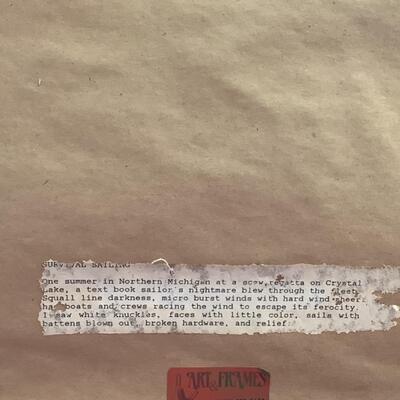 SURVIVAL SAILING
One summer in Northern Michigan at a scow regatta on Crystal
Lake, a text book sailor's nightmare blew through the fleet.
Squall line darkness, micro burst winds with hard wind sheer
had boats and crews racing the wind to escape its ferocity.
I saw white knuckles, faces with little color, sails with
battens blown out, broken hardware, and relief.
ART & FRAMES